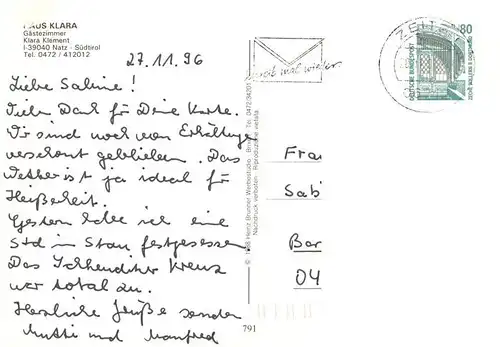 HAUS KLARA
Gästezimmer
Klara Klement
I-39040 Natz - Südtirol
Tel. 0472 / 412012
27.11.96
Liebe Sabine!
Vielen Dank für Deine Karte.
Wir sind noch von Erkältungen
verschont geblieben. Das
Wetter ist ja ideal für
Heiserkeit.
Gestern habe ich eine
Std im Stau festgesessen.
Das Schkeuditzer Kreuz
war total zu.
Herzliche Grüße senden
Mutti und Manfred
mal wieder.
80
DEUTSCHE BUNDESPOST
Fra
Sab
Bar
04
© 1988 Heinz Brunner Werbestudio
Nachdruck verboten
791